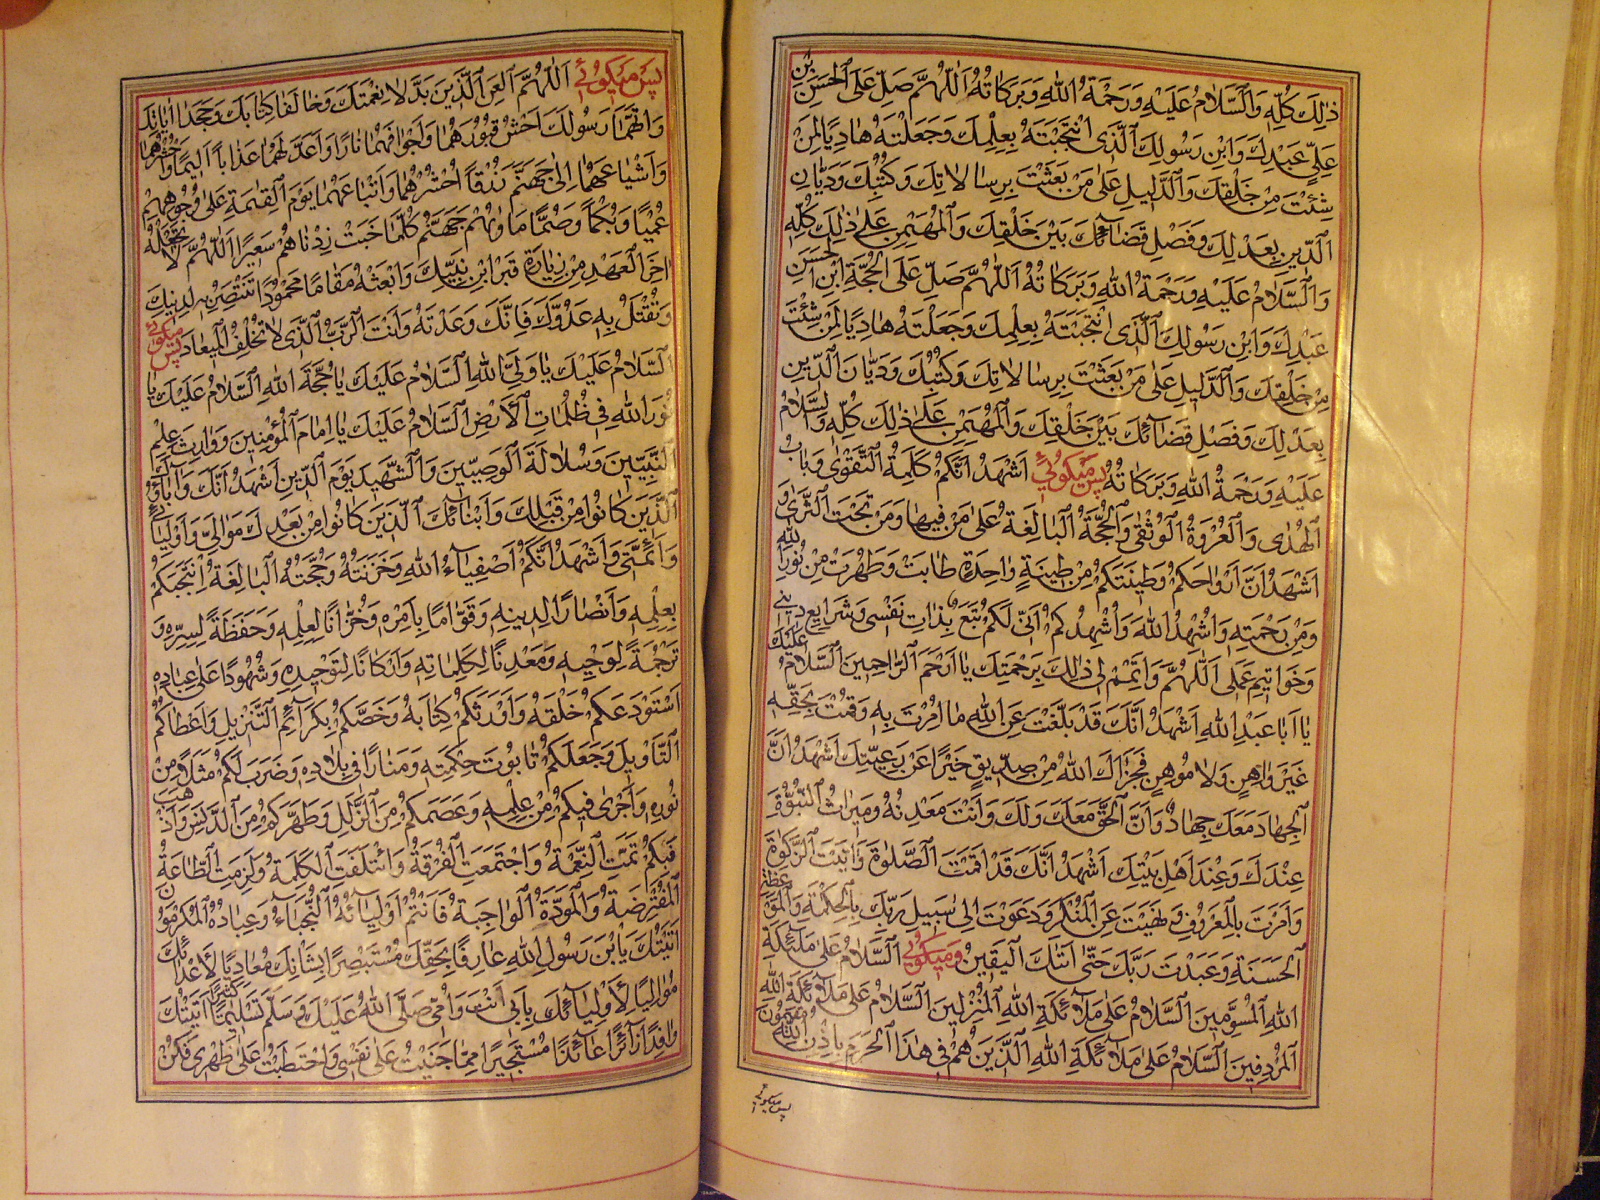 ذٰلِكَ كُلِّهِ وَالسَّلَامُ عَلَيْهِ وَرَحْمَةُ اللهِ وَبَرَكَاتُهُ اَللّٰهُمَّ صَلِّ عَلَى الْحَسَنِ بْنِ
عَلِيٍّ عَبْدِكَ وَابْنِ رَسُولِكَ الَّذِى انْتَجَبْتَهُ بِعِلْمِكَ وَجَعَلْتَهُ هَادِيًا لِمَنْ
شِئْتَ مِنْ خَلْقِكَ وَالدَّلِيلِ عَلٰى مَنْ بَعَثْتَ بِرِسَالَاتِكَ وَكُتُبِكَ وَدَيَّانِ
الدِّينِ بِعَدْلِكَ وَفَصْلِ قَضَائِكَ بَيْنَ خَلْقِكَ وَالْمُهَيْمِنِ عَلٰى ذٰلِكَ كُلِّهِ
وَالسَّلَامُ عَلَيْهِ وَرَحْمَةُ اللهِ وَبَرَكَاتُهُ اَللّٰهُمَّ صَلِّ عَلَى الْحُجَّةِ ابْنِ الْحَسَنِ
عَبْدِكَ وَابْنِ رَسُولِكَ الَّذِى انْتَجَبْتَهُ بِعِلْمِكَ وَجَعَلْتَهُ هَادِيًا لِمَنْ شِئْتَ
مِنْ خَلْقِكَ وَالدَّلِيلِ عَلٰى مَنْ بَعَثْتَ بِرِسَالَاتِكَ وَكُتُبِكَ وَدَيَّانَ الدِّينِ
بِعَدْلِكَ وَفَصْلِ قَضَائِكَ بَيْنَ خَلْقِكَ وَالْمُهَيْمِنِ عَلٰى ذٰلِكَ كُلِّهِ وَالسَّلَامُ
عَلَيْهِ وَرَحْمَةُ اللهِ وَبَرَكَاتُهُ پس ميكوئي اَشْهَدُ اَنَّكُمْ كَلِمَةُ التَّقْوٰى وَبَابُ
الْهُدٰى وَالْعُرْوَةُ الْوُثْقٰى وَالْحُجَّةُ الْبَالِغَةُ عَلٰى مَنْ فِيهَا وَمَنْ تَحْتَ الثَّرٰى وَ
اَشْهَدُ اَنَّ اَرْوَاحَكُمْ وَطِينَتَكُمْ مِنْ طِينَةٍ وَاحِدَةٍ طَابَتْ وَطَهُرَتْ مِنْ نُورِ اللهِ
وَمِنْ رَحْمَتِهِ وَاُشْهِدُ اللهَ وَاُشْهِدُكُمْ اَنِّى لَكُمْ تَبَعٌ بِذَاتِ نَفْسِى وَشَرَايِعِ دِينِى
وَخَوَاتِيمِ عَمَلِى اَللّٰهُمَّ وَاَتْمِمْ لِى ذٰلِكَ بِرَحْمَتِكَ يَا اَرْحَمَ الرَّاحِمِينَ اَلسَّلَامُ عَلَيْكَ
يَا اَبَا عَبْدِ اللهِ اَشْهَدُ اَنَّكَ قَدْ بَلَّغْتَ عَنِ اللهِ مَا اُمِرْتَ بِهِ وَقُمْتَ بِحَقِّهِ
غَيْرَ وَاهِنٍ وَلَا مُوهِنٍ فَجَزَاكَ اللهُ مِنْ صِدِّيقٍ خَيْرًا عَنْ رَعِيَّتِكَ اَشْهَدُ اَنَّ
الْجِهَادَ مَعَكَ جِهَادٌ وَاَنَّ الْحَقَّ مَعَكَ وَلَكَ وَاَنْتَ مَعْدِنُهُ وَمِيرَاثُ النُّبُوَّةِ
عِنْدَكَ وَعِنْدَ اَهْلِ بَيْتِكَ اَشْهَدُ اَنَّكَ قَدْ اَقَمْتَ الصَّلٰوةَ وَاٰتَيْتَ الزَّكٰوةَ
وَاَمَرْتَ بِالْمَعْرُوفِ وَنَهَيْتَ عَنِ الْمُنْكَرِ وَدَعَوْتَ اِلٰى سَبِيلِ رَبِّكَ بِالْحِكْمَةِ وَالْمَوْعِظَةِ
الْحَسَنَةِ وَعَبَدْتَ رَبَّكَ حَتّٰى اَتٰيكَ الْيَقِينُ وميكوئي اَلسَّلَامُ عَلٰى مَلٰئِكَةِ
اللهِ الْمُسَوِّمِينَ اَلسَّلَامُ عَلٰى مَلَائِكَةِ اللهِ الْمُنْزَلِينَ اَلسَّلَامُ عَلٰى مَلَائِكَةِ اللهِ
الْمُرْدِفِينَ اَلسَّلَامُ عَلٰى مَلَائِكَةِ اللهِ الَّذِينَ هُمْ فِى هٰذَا الْحَرَمِ بِاِذْنِ اللهِ مُقِيمُونَ
پس ميكوئي
پس ميكوئي اَللّٰهُمَّ الْعَنِ الَّذِينَ بَدَّلَا نِعْمَتَكَ وَخَالَفَا كِتَابَكَ وَجَحَدَا اٰيَاتِكَ
وَاتَّهَمَا رَسُولَكَ اُحْشُ قُبُورَهُمَا وَاَجْوَافَهُمَا نَارًا وَاَعِدَّ لَهُمَا عَذَابًا اَلِيمًا وَاحْشُرْهُمَا
وَاَشْيَاعَهُمَا اِلٰى جَهَنَّمَ زُرْقًا اُحْشُرْهُمَا وَاَتْبَاعَهُمَا يَوْمَ الْقِيٰمَةِ عَلٰى وُجُوهِهِمْ
عُمْيًا وَبُكْمًا وَصُمًّا مَاْوٰيهُمْ جَهَنَّمُ كُلَّمَا خَبَتْ زِدْنَاهُمْ سَعِيرًا اَللّٰهُمَّ لَا تَجْعَلْهُ
اٰخِرَ الْعَهْدِ مِنْ زِيَارَةِ قَبْرِ ابْنِ نَبِيِّكَ وَابْعَثْهُ مَقَامًا مَحْمُودًا تَنْتَصِرُ بِهِ لِدِينِكَ
وَتَقْتُلُ بِهِ عَدُوَّكَ فَاِنَّكَ وَعَدْتَهُ وَاَنْتَ الرَّبُّ الَّذِى لَا تُخْلِفُ الْمِيعَادَ پس ميكوئي
اَلسَّلَامُ عَلَيْكَ يَا وَلِيَّ اللهِ اَلسَّلَامُ عَلَيْكَ يَا حُجَّةَ اللهِ اَلسَّلَامُ عَلَيْكَ يَا
نُورَ اللهِ فِى ظُلُمَاتِ الْاَرْضِ اَلسَّلَامُ عَلَيْكَ يَا اِمَامَ الْمُؤْمِنِينَ وَوَارِثَ عِلْمِ
النَّبِيِّينَ وَسُلَالَةَ الْوَصِيِّينَ وَالشَّهِيدَ يَوْمَ الدِّينِ اَشْهَدُ اَنَّكَ وَاٰبَاؤُكَ
الَّذِينَ كَانُوا مِنْ قَبْلِكَ وَاَبْنَائَكَ الَّذِينَ كَانُوا مِنْ بَعْدِكَ مَوَالِيَّ وَاَوْلِيَائِى
وَاَئِمَّتِى وَاَشْهَدُ اَنَّكُمْ اَصْفِيَاءُ اللهِ وَخَزَنَتُهُ وَحُجَّتُهُ الْبَالِغَةُ اِنْتَجَبَكُمْ
بِعِلْمِهِ وَاَنْصَارًا لِدِينِهِ وَقَوَّامًا بِاَمْرِهِ وَخُزَّانًا لِعِلْمِهِ وَحَفَظَةً لِسِرِّهِ وَ
تَرْجَمَةً لِوَحْيِهِ وَمَعْدِنًا لِكَلِمَاتِهِ وَاَرْكَانًا لِتَوْحِيدِهِ وَشُهُودًا عَلٰى عِبَادِهِ
اسْتَوْدَعَكُمْ خَلْقَهُ وَاَوْرَثَكُمْ كِتَابَهُ وَخَصَّكُمْ بِكَرَائِمِ التَّنْزِيلِ وَاَعْطَاكُمُ
التَّاْوِيلَ وَجَعَلَكُمْ تَابُوتَ حِكْمَتِهِ وَمَنَارًا فِى بِلَادِهِ وَضَرَبَ لَكُمْ مَثَلًا مِنْ
نُورِهِ وَاَجْرٰى فِيكُمْ مِنْ عِلْمِهِ وَعَصَمَكُمْ مِنَ الزَّلَلِ وَطَهَّرَكُمْ مِنَ الدَّنَسِ وَاَذْهَبَ
فَبِكُمْ تَمَّتِ النِّعْمَةُ وَاجْتَمَعَتِ الْفُرْقَةُ وَائْتَلَفَتِ الْكَلِمَةُ وَلَزِمَتِ الطَّاعَةُ
الْمُفْتَرَضَةُ وَالْمَوَدَّةُ الْوَاجِبَةُ فَاَنْتُمْ اَوْلِيَائُهُ النُّجَبَاءُ وَعِبَادُهُ الْمُكْرَمُونَ
اَتَيْتُكَ يَا بْنَ رَسُولِ اللهِ عَارِفًا بِحَقِّكَ مُسْتَبْصِرًا بِشَاْنِكَ مُعَادِيًا لِاَعْدَائِكَ
مُوَالِيًا لِاَوْلِيَائِكَ بِاَبِى اَنْتَ وَاُمِّى صَلَّى اللهُ عَلَيْكَ وَسَلَّمَ تَسْلِيمًا كَثِيرًا اَتَيْتُكَ
وَافِدًا زَائِرًا عَائِذًا مُسْتَجِيرًا مِمَّا جَنَيْتُ عَلٰى نَفْسِى وَاحْتَطَبْتُ عَلٰى ظَهْرِى فَكُنْ